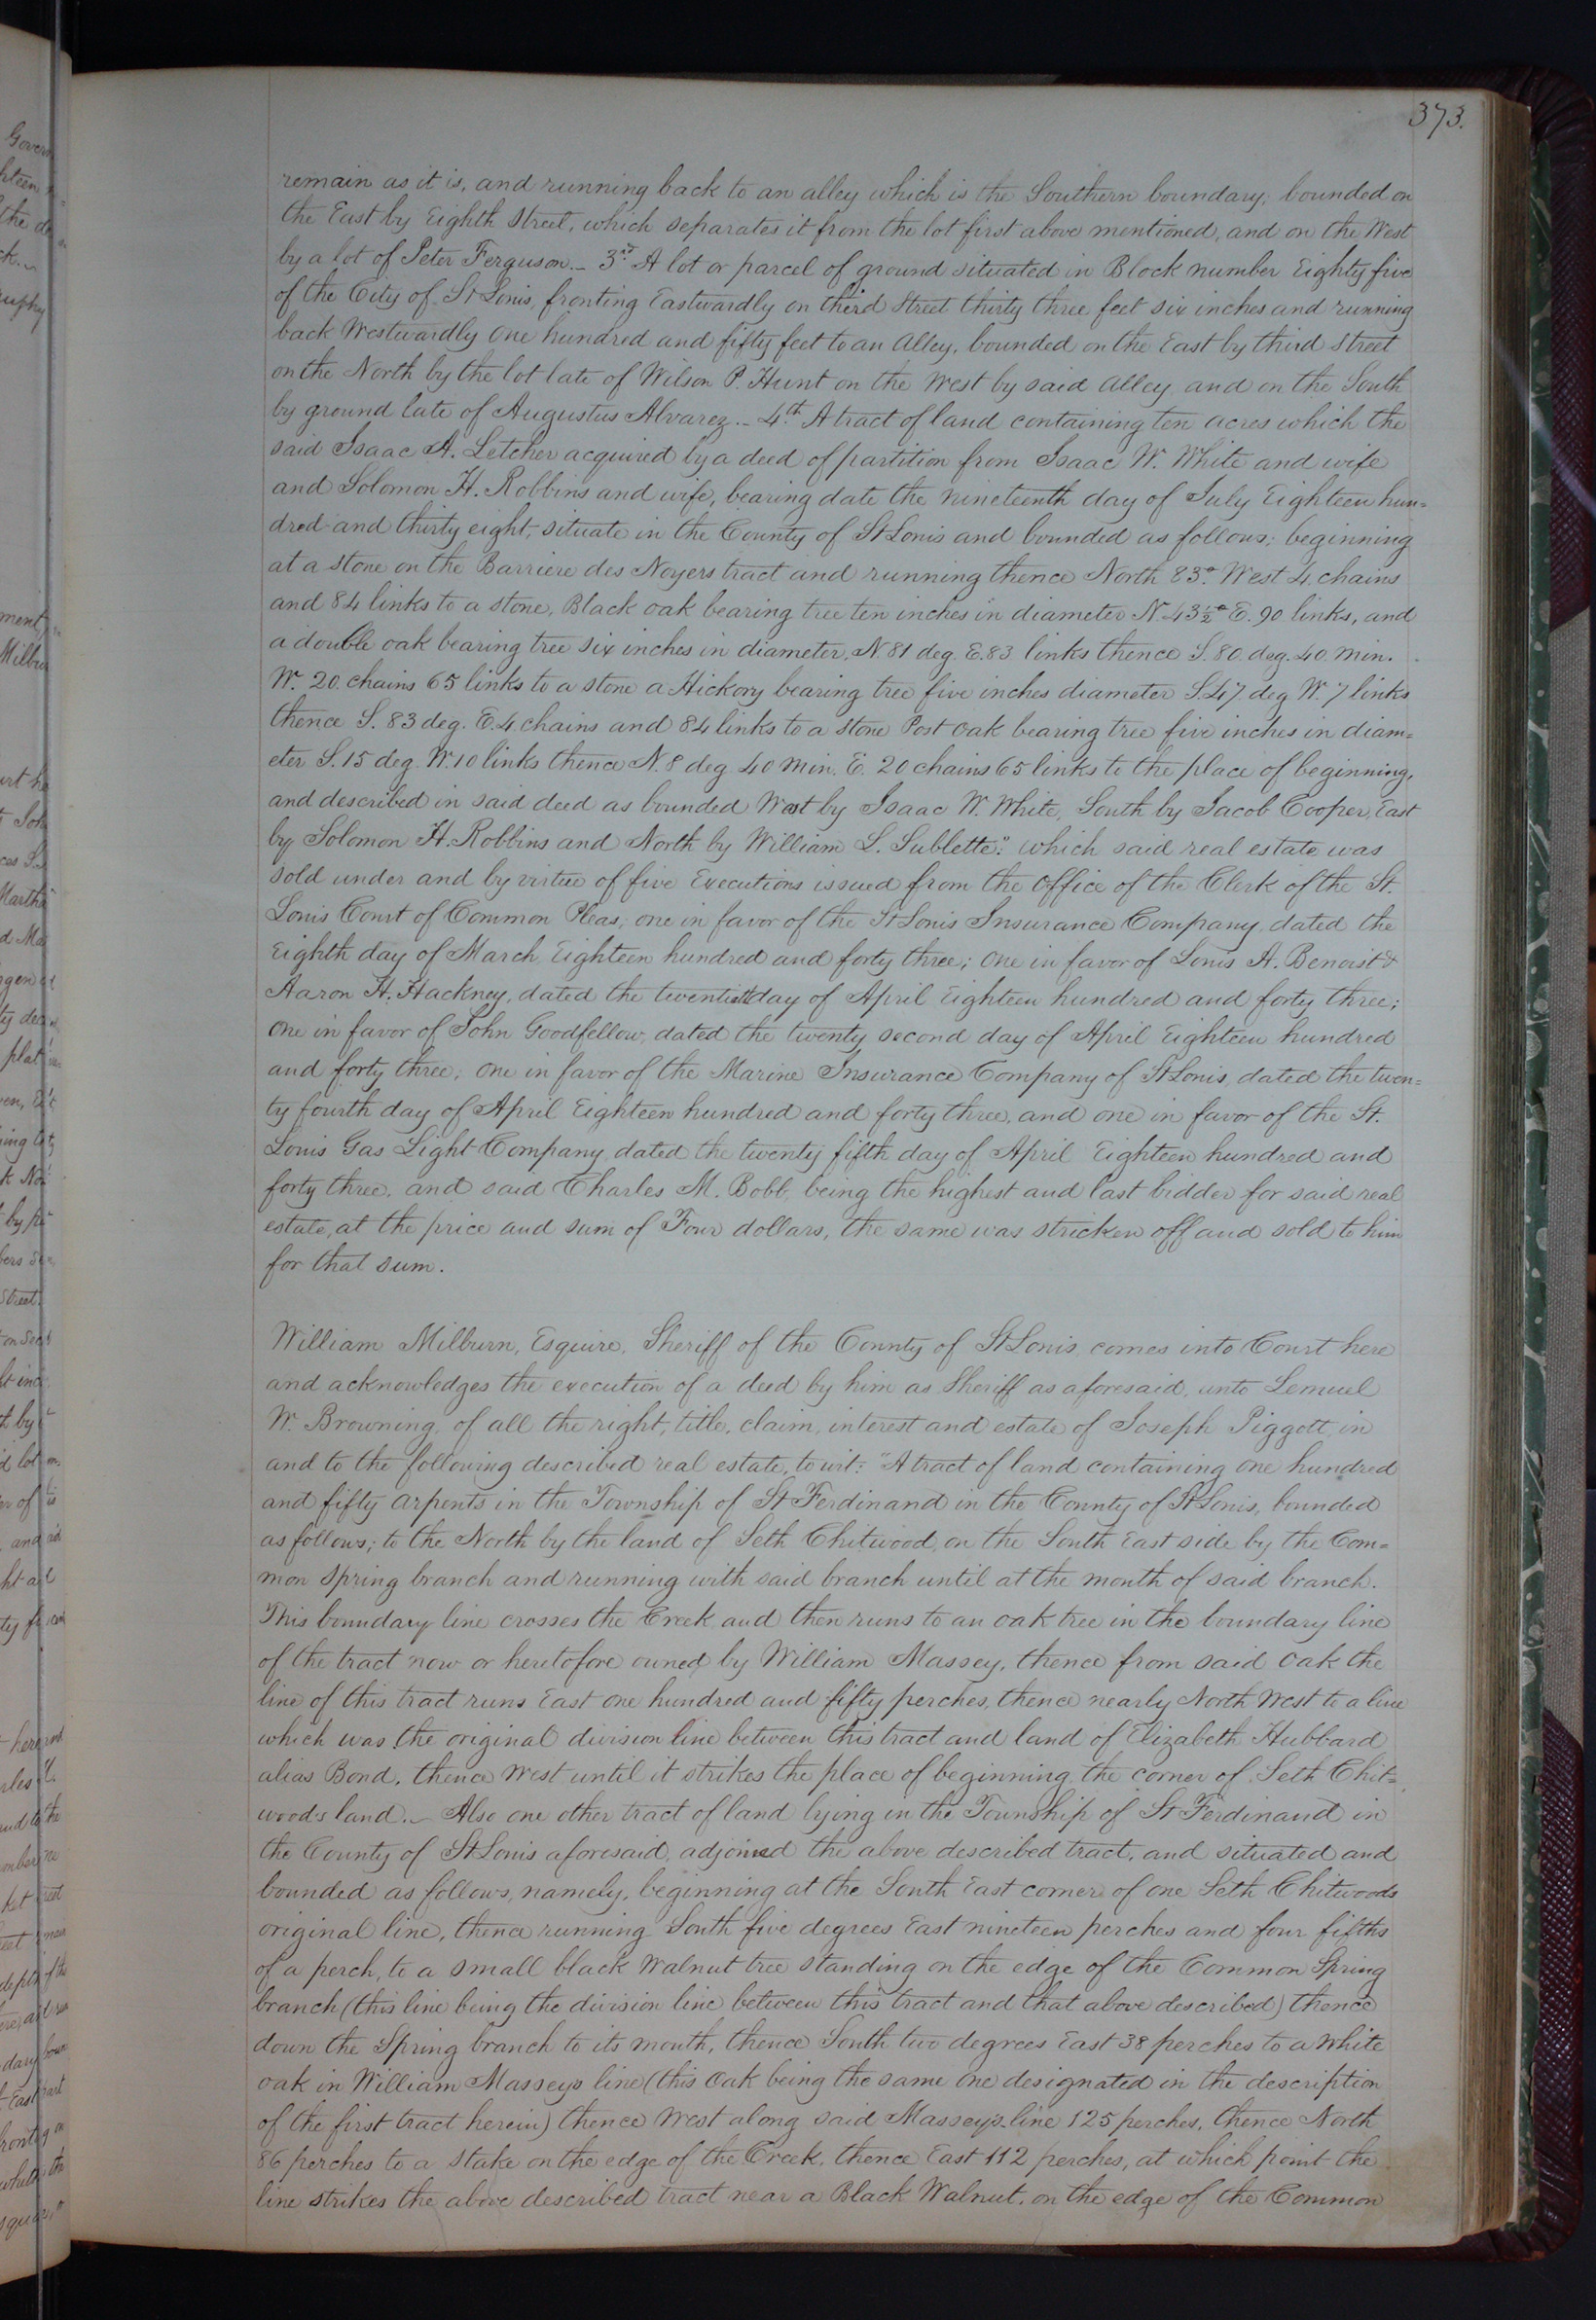 373.
remain as it is, and running back to an alley which is the Southern boundary; bounded on
the East by Eighth Street, which separates it from the lot first above mentioned, and on the West
by a lot of Peter Ferguson._ 3rd A lot or parcel of ground situated in Block number Eighty five
of the City of St Louis, fronting Eastwardly on third Street thirty three feet six inches and running
back Westwardly One hundred and fifty feet to an Alley, bounded on the East by third Street
on the North by the lot late of Wilson P. Hunt on the West by said Alley and on the South
by ground late of Augustus Alvarez._ 4th A tract of land containing ten acres which the
said Isaac A. Letcher acquired by a deed of partition from Isaac W. White and wife
and Solomon H. Robbins and wife, bearing date the nineteenth day of July Eighteen hun=
dred and thirty eight, situate in the County of St Louis and bounded as follows; beginning
at a stone on the Barriere des Noyers tract and running thence North 83° West 4 chains
and 84 links to a stone, Black oak bearing tree ten inches in diameter N. 43½° E. 90 links, and
a double oak bearing tree six inches in diameter, N. 81 deg. E. 83 links thence S. 80. deg. 40 min.
W. 20. chains 65 links to a stone a Hickory bearing tree five inches diameter S. 47 deg W. 7 links
thence S. 83 deg. E. 4 chains and 84 links to a stone Post oak bearing tree five inches in diam=
eter S. 15 deg. W. 10 links thence N. 8 deg 40 min. E. 20 chains 65 links to the place of beginning,
and described in said deed as bounded West by Isaac W. White, South by Jacob Cooper, East
by Solomon H. Robbins and North by William L. Sublette." which said real estate was
sold under and by virtue of five Executions issued from the Office of the Clerk of the St.
Louis Court of Common Pleas; one in favor of the St Louis Insurance Company, dated the
Eighth day of March Eighteen hundred and forty three; One in favor of Louis A. Benoist &
Aaron H. Hackney, dated the twentieth day of April Eighteen hundred and forty three;
One in favor of John Goodfellow, dated the twenty second day of April Eighteen hundred
and forty three; One in favor of the Marine Insurance Company of St Louis, dated the twen=
ty fourth day of April Eighteen hundred and forty three, and one in favor of the St.
Louis Gas Light Company dated the twenty fifth day of April Eighteen hundred and
forty three, and said Charles M. Bobb, being the highest and last bidder for said real
estate, at the price and sum of Four dollars, the same was stricken off and sold to him
for that sum.
William Milburn, Esquire, Sheriff of the County of St Louis, comes into Court here
and acknowledges the execution of a deed by him as Sheriff as aforesaid, unto Lemuel
W. Browning, of all the right, title, claim, interest and estate of Joseph Piggott, in
and to the following described real estate, to wit: "A tract of land containing one hundred
and fifty arpents in the Township of St Ferdinand in the County of St Louis, bounded
as follows; to the North by the land of Seth Chitwood, on the South East side by the Com=
mon Spring branch and running with said branch until at the mouth of said branch.
This boundary line crosses the Creek and then runs to an oak tree in the boundary line
of the tract now or heretofore owned by William Massey, thence from said Oak the
line of this tract runs East one hundred and fifty perches, thence nearly North West to a line
which was the original division line between this tract and land of Elizabeth Hubbard
alias Bond, thence West until it strikes the place of beginning the corner of Seth Chit=
woods land._ Also one other tract of land lying in the Township of St Ferdinand in
the County of St Louis aforesaid, adjoined the above described tract, and situated and
bounded as follows, namely, beginning at the South East corner of one Seth Chitwoods
original line, thence running South five degrees East nineteen perches and four fifths
of a perch, to a small black Walnut tree standing on the edge of the Common Spring
branch (this line being the division line between this tract and that above described) thence
down the Spring branch to its mouth, thence South two degrees East 38 perches to a White
oak in William Masseys line (this Oak being the same one designated in the description
of the first tract herein) thence West along said Massey's line 125 perches, thence North
86 perches to a Stake on the edge of the Creek, thence East 112 perches, at which point the
line strikes the above described tract near a Black Walnut, on the edge of the Common